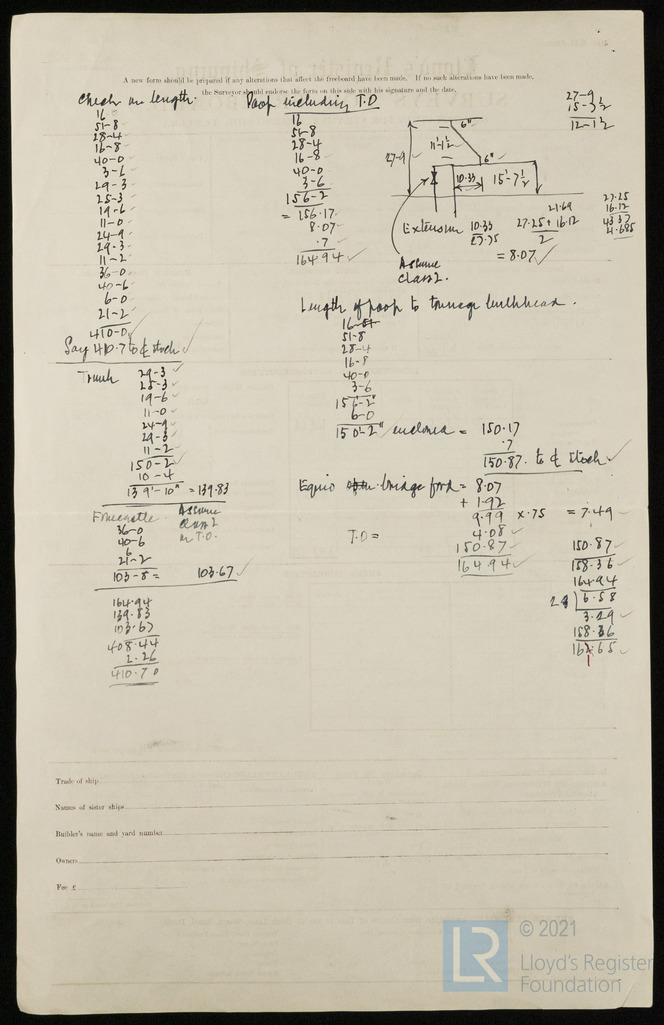 A new form should be prepared if any alterations that affect the freeboard have been made. If no such alterations have been made,
the Surveyor should endorse the form on this side with his signature and the date,
Check on length.
16
51-8
28-4
16-8
40-0
3-6
29-3
25-3
19-6
11-0
24-9
29-3
11-2
36-0
40-6
6-0
21-2
410-0
Say 410.7 to ₵ stock
Trunk
29-3
25-3
19-6
11-0
24-9
29-3
11-2
150-2
10-4
139'-10" = 139.83
Forecastle
Assume
Class 2
in T.O.
36-0
40-6
6
21-2
103-8 = 103.67
164.94
139.83
103.67
408.44
2.26
410.70
Poop including T.O
16
51-8
28-4
16-8
40-0
3-6
156-2
= 156.17
8.07
.7
164.94
6"
11-1½
27-9
6"
10.33
15'-7½
Extension 10.33
27.25 + 16.12
2
21.69
= 8.07
Assume
Class 2.
27-9
12-1½
27.25
16.12
43.37
21.685
Length of poop to tonnage bulkhead.
16
51-8
28-4
16-8
40-0
3-6
156-2"
6-0
150'-2" enclosed = 150.17
.7
150.87. to ₵ stock
Equiv bridge for'd = 8.07
+ 1.92
9.99 x .75 = 7.49
T.O =
4.08
150.87
164.94
150.87
158.36
164.94
6.58
3.29
158.36
Trade of ship
Names of sister ships
Builder's name and yard number
Owners
Fee £
LR
© 2021
Lloyd's Register
Foundation